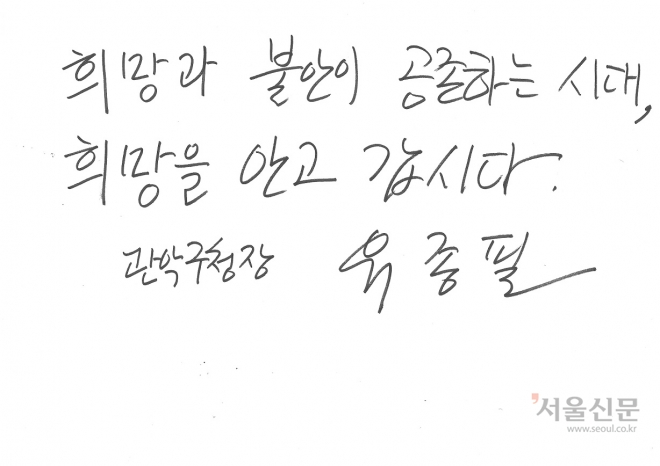 희망과 불안이 공존하는 시대,
희망을 안고 갑시다.
관악구청장 유종필
서울신문
www.seoul.co.kr